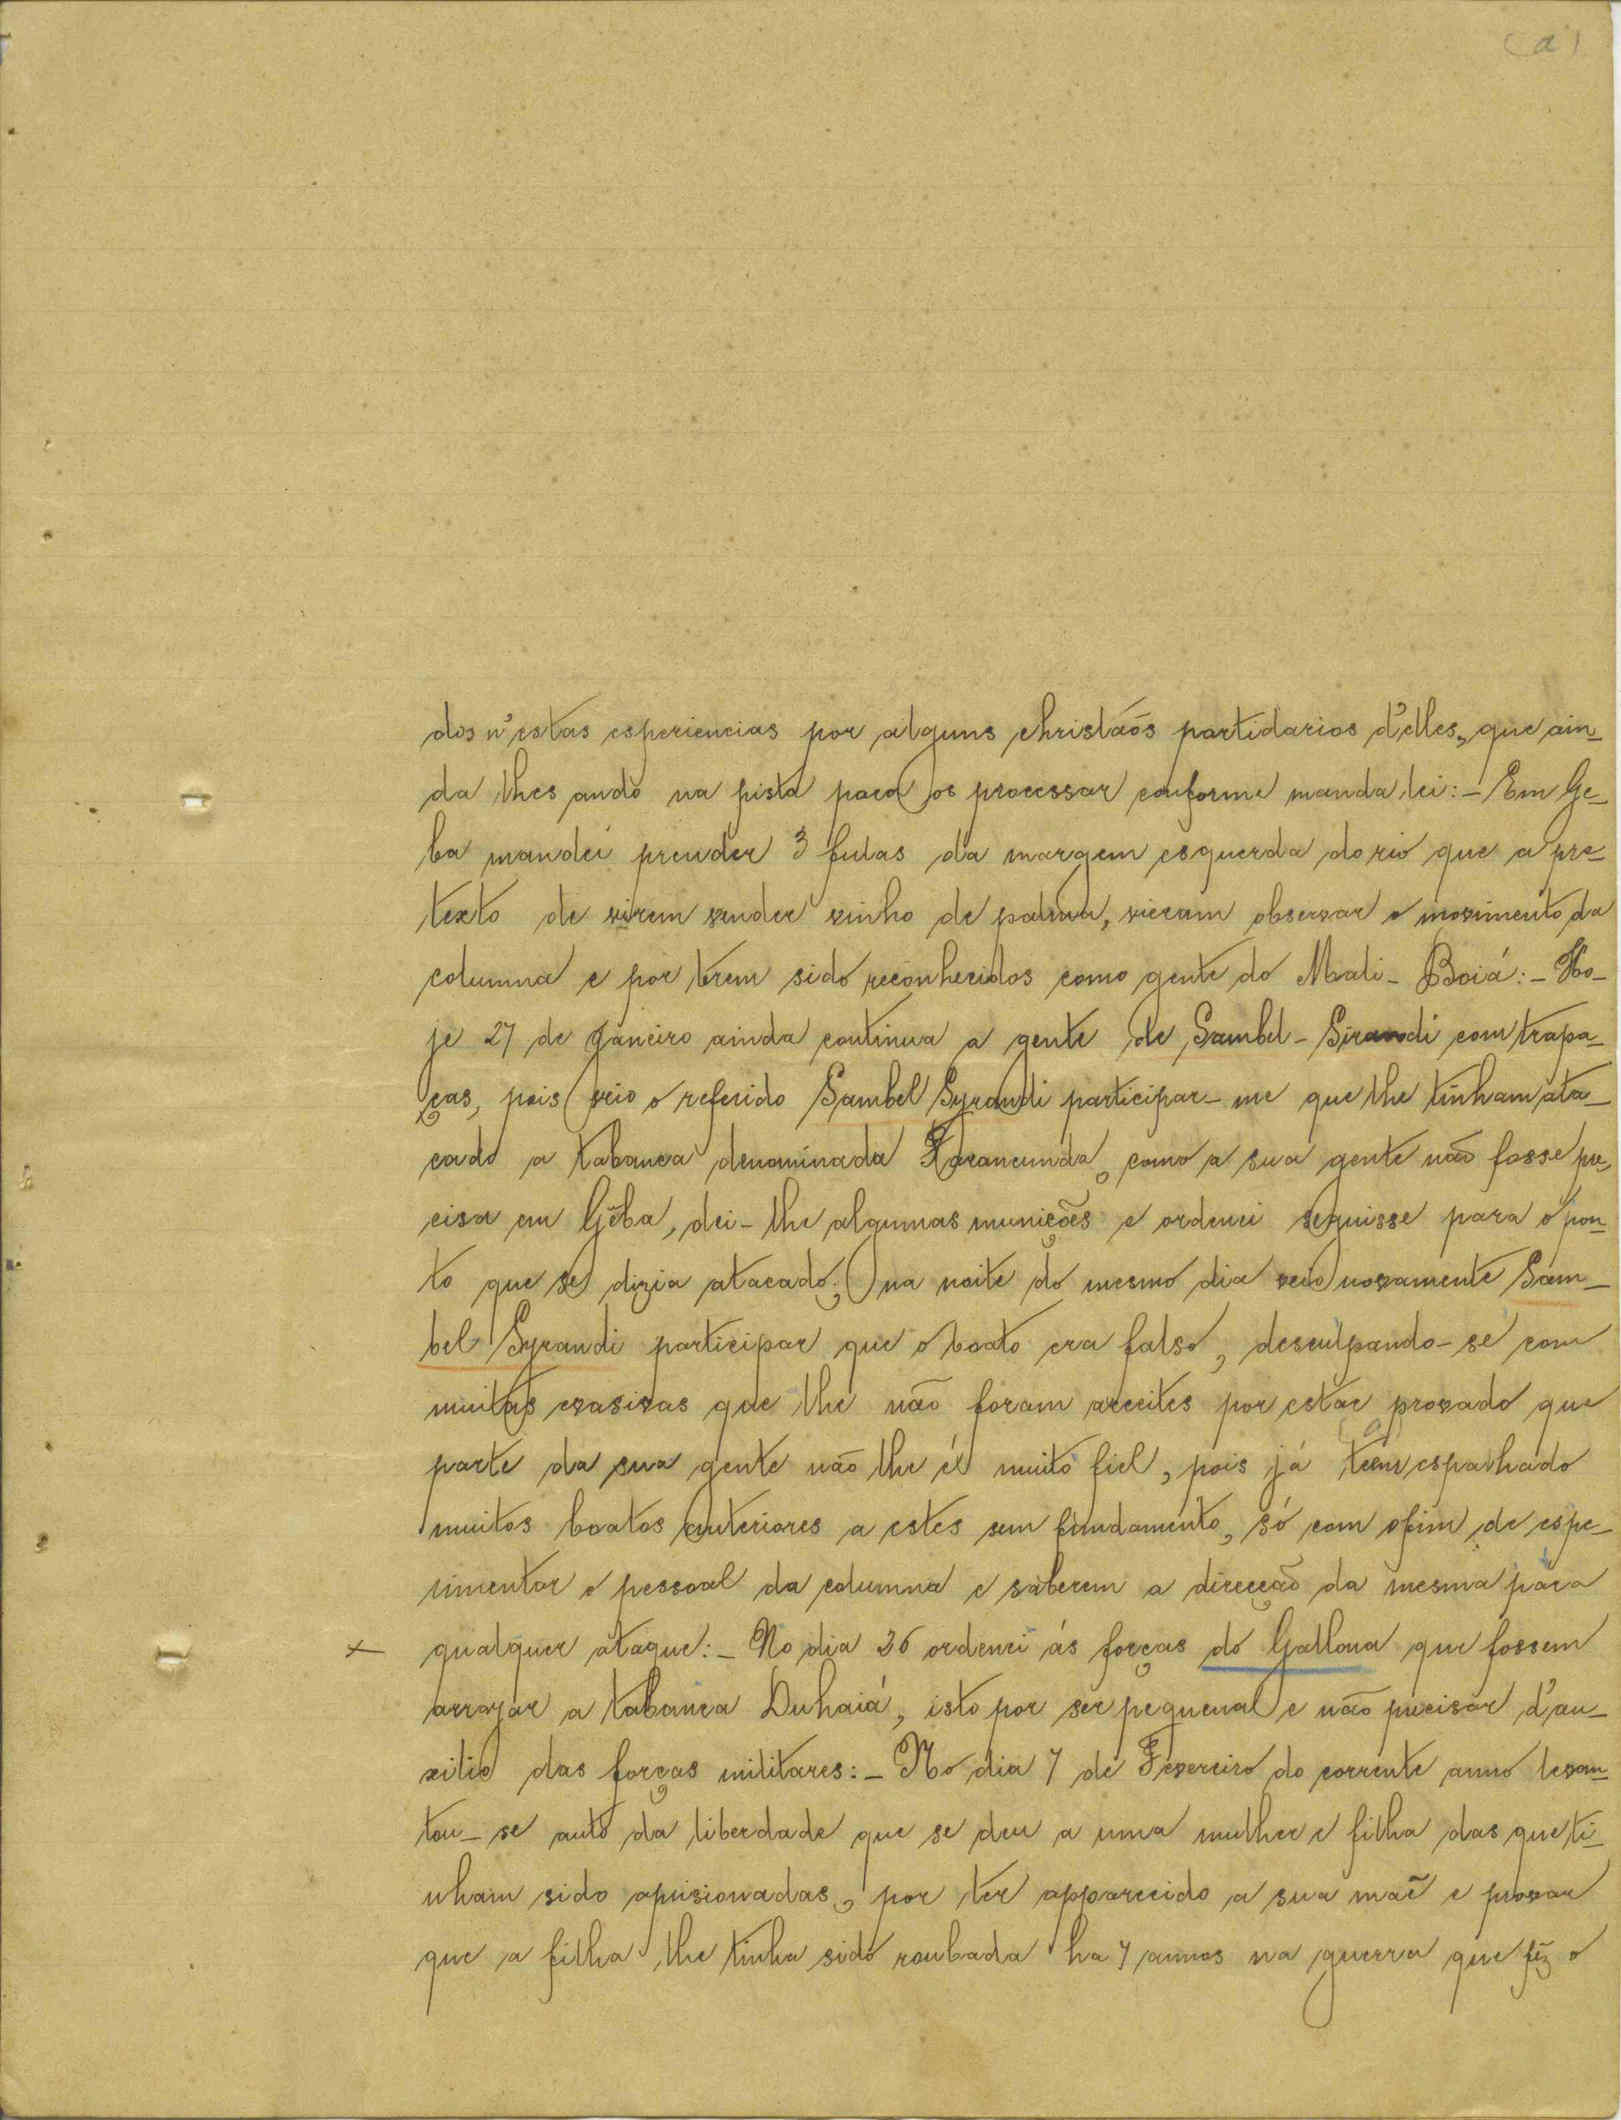 (a)
dos n'estas esperiencias por alguns christãos partidarios d'elles, que ain-
da lhes ando na pista para os processar conforme manda lei: - Em Ge-
ba mandei prender 3 fulas da margem esquerda do rio que a pre-
texto de virem vender vinho de palma, vieram observar o movimento da
columna e por terem sido reconhecidos como gente do Mali-Boiá: - Ho-
je 27 de Janeiro ainda continua a gente de Sambel-Sirandi com trapa-
ças, pois veio o referido Sambel Syrandi participar-me que lhe tinham ata-
cado a tabanca denominada como a sua gente não fosse pre-
cisa em Gêba, dei-lhe algumas munições e ordenei seguisse para o pon-
to que se dizia atacado; na noite do mesmo dia veio novamente Sam-
bel Syrandi participar que o boato era falso, desculpando-se com
muitas evasivas que lhe não foram acceites por estar provado que
parte da sua gente não lhe é muito fiel, pois já teem espalhado
muitos boatos anteriores a estes sem fundamento, só com o fim de espe-
rimentar o pessoal da columna e saberem a direcção da mesma para
qualquer ataque: - No dia 26 ordenei ás forças do Gallona que fossem
arrazar a tabanca Duhaiá, isto por ser pequena e não precisar d'au-
xilio das forças militares: - No dia 7 de Fevereiro do corrente anno levan-
tou-se auto da liberdade que se deu a uma mulher e filha das que ti-
nham sido aprisionadas, por ter apparecido a sua mãe e provar
que a filha lhe tinha sido roubada ha 7 annos na guerra que fez o